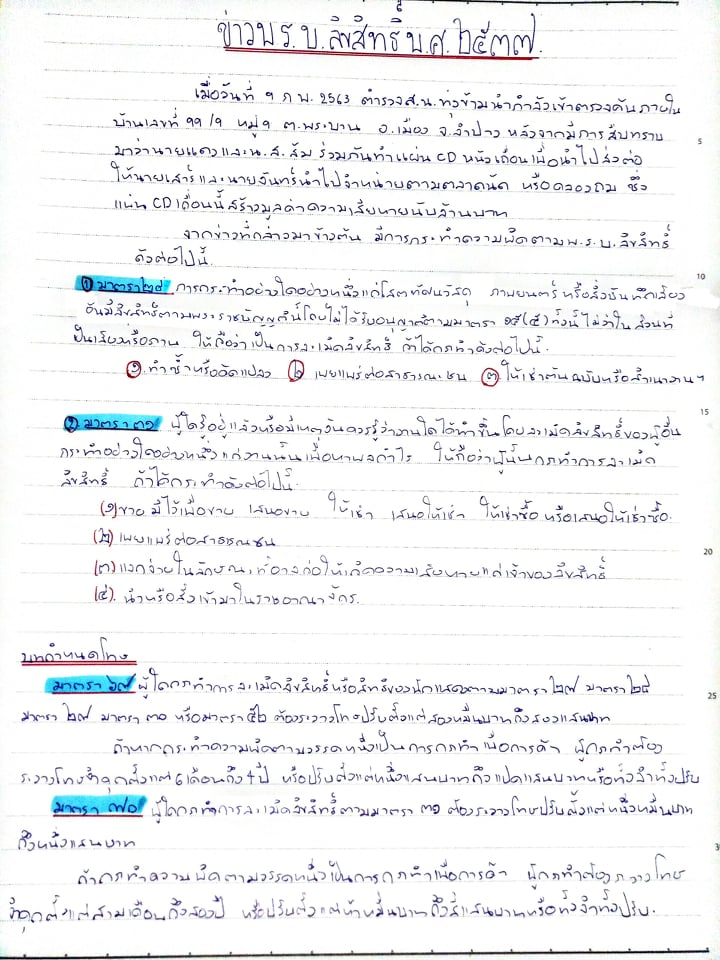 ข่าวพ.ร.บ.ลิขสิทธิ์ พ.ศ.๒๕๓๗.
เมื่อวันที่ ๑ ก.พ. 2563 ตำรวจส.น.ทุ่งข้ามนำกำลังเข้าตรวจค้นภายใน
บ้านเลขที่ ๑๑/๑ หมู่๑ ต.พระบาน อ.เมือง จ.ลำปาง หลังจากมีการสืบทราบ
มาว่านายแดงและน.ส.ส้ม ร่วมกันทำแผ่น CD หนังเถื่อนเพื่อนำไปส่งต่อ
ให้นายเสาร์และนายจันทร์นำไปจำหน่ายตามตลาดนัด หรือคลองถม ซึ่ง
แผ่น CD เถื่อนนี้สร้างมูลค่าความเสียหายนับล้านบาท
จากข่าวที่กล่าวมาข้างต้น มีการกระทำความผิดตามพ.ร.บ.ลิขสิทธิ์
ดังต่อไปนี้.
① มาตรา๒๘ การกระทำอย่างใดอย่างหนึ่งแก่โสตทัศนวัสดุ ภาพยนตร์ หรือสิ่งบันทึกเสียง
อันมีลิขสิทธิ์ตามพระราชบัญญัตินี้โดยไม่ได้รับอนุญาตตามมาตรา ๑๕(๕) ทั้งนี้ ไม่ว่าใน ส่วนที่
เป็นเสียงหรือภาพ ให้ถือว่าเป็นการละเมิดลิขสิทธิ์ ถ้าได้กระทำดังต่อไปนี้.
๑. ทำซ้ำหรือดัดแปลง ๒ เผยแพร่ต่อสาธารณะชน ๓. ให้เช่าต้นฉบับหรือสำเนางานฯ
② มาตรา๓๑ ผู้ใดรู้อยู่แล้วหรือมีเหตุอันควรรู้ว่างานใดได้ทำขึ้นโดยละเมิดลิขสิทธิ์ของผู้อื่น
กระทำอย่างใดอย่างหนึ่งแก่งานนั้นเพื่อหาผลกำไร ให้ถือว่าผู้นั้นกระทำการละเมิด
ลิขสิทธิ์ ถ้าได้กระทำดังต่อไปนี้.
(๑) ขาย มีไว้เพื่อขาย เสนอขาย ให้เช่า เสนอให้เช่า ให้เช่าซื้อ หรือเสนอให้เช่าซื้อ.
(๒) เผยแพร่ต่อสาธารณชน
(๓) แจกจ่ายในลักษณะที่อาจก่อให้เกิดความเสียหายแก่เจ้าของลิขสิทธิ์
(๔). นำหรือสั่งเข้ามาในราชอาณาจักร.
บทกำหนดโทษ
มาตรา ๖๙ ผู้ใดกระทำการละเมิดลิขสิทธิ์หรือสิทธิของนักแสดงตามมาตรา ๒๗ มาตรา ๒๘
มาตรา ๒๙ มาตรา ๓๐ หรือมาตรา ๕๒ ต้องระวางโทษปรับตั้งแต่สองหมื่นบาทถึงสองแสนบาท
ถ้าหากกระทำความผิดตามวรรคหนึ่งเป็นการกระทำเพื่อการค้า ผู้กระทำต้อง
ระวางโทษจำคุกตั้งแต่ 6 เดือนถึง 4 ปี หรือปรับตั้งแต่หนึ่งแสนบาทถึงแปดแสนบาทหรือทั้งจำทั้งปรับ
มาตรา ๗๐ ผู้ใดกระทำการละเมิดลิขสิทธิ์ตามมาตรา ๓๑ ต้องระวางโทษปรับตั้งแต่หนึ่งหมื่นบาท
ถึงหนึ่งแสนบาท
ถ้ากระทำความผิดตามวรรคหนึ่งเป็นการกระทำเพื่อการค้า ผู้กระทำต้องระวางโทษ
จำคุกตั้งแต่สามเดือนถึงสองปี หรือปรับตั้งแต่ห้าหมื่นบาทถึงสี่แสนบาทหรือทั้งจำทั้งปรับ.
5
10
15
20
25